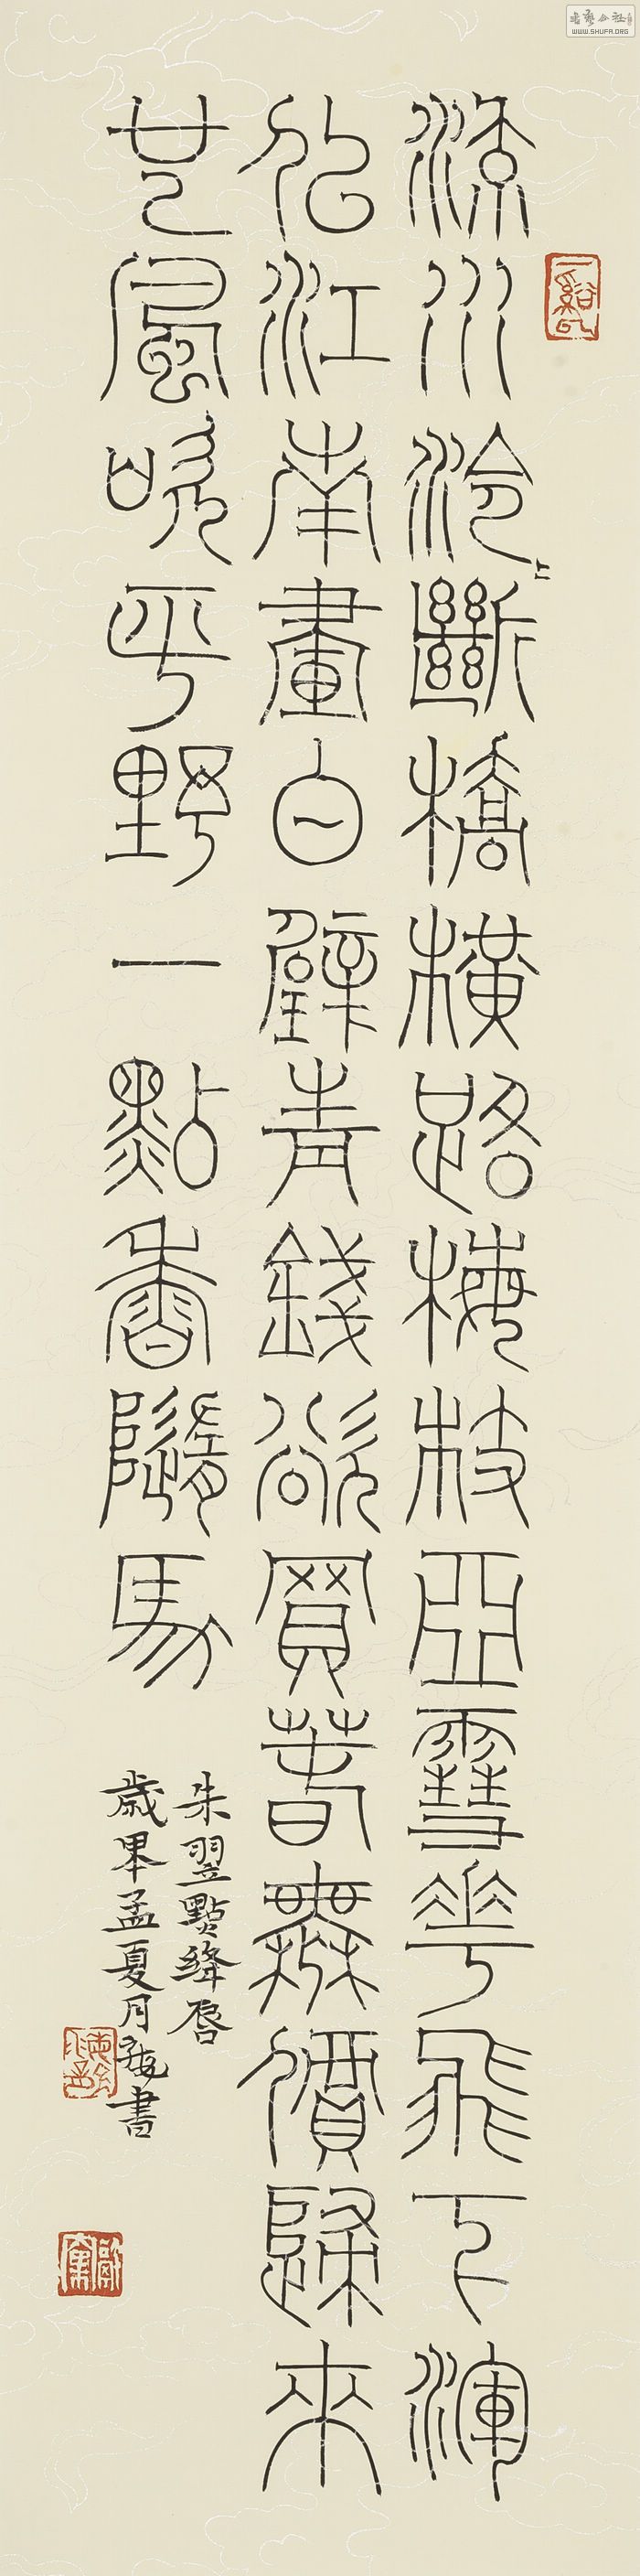 流水泠〻斷橋橫路梅枝亞雪花飛下渾
似江南畫白璧青錢欲買春無價歸來
也風吹平野一點香隨馬
朱翌點絳唇
歲孟夏月書
書藝公社
WWW.SHUFA.ORG